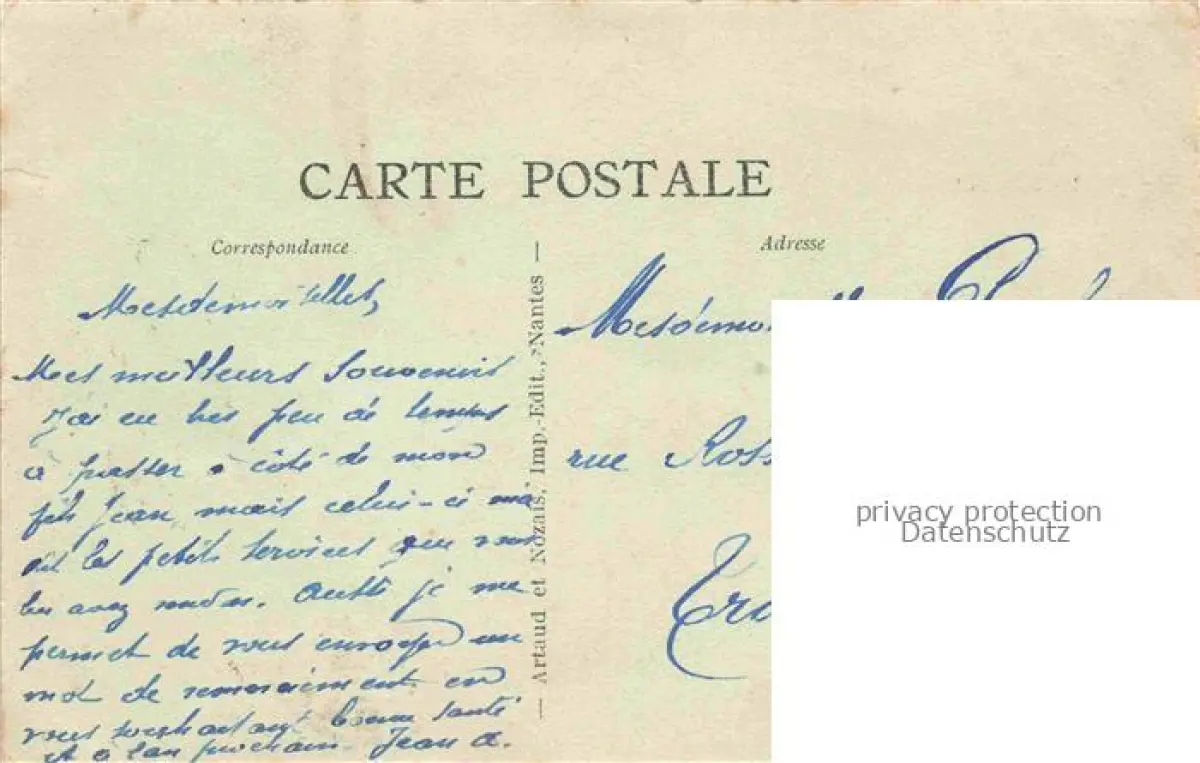 CARTE POSTALE
Correspondance
Mesdemoiselles,
Mes meilleurs souvenirs
J'ai eu très peu de temps
à passer à côté de mon
fils Jean, mais celui-ci m'a
dit les petits services que vous
lui avez rendus. Aussi je me
permet de vous envoyer un
mot de remerciement en
vous souhaitant bonne santé
et à l'an prochain. Jean
— Artaud et Nozais, Imp.-Edit., Nantes —
Adresse
rue
privacy protection
Datenschutz